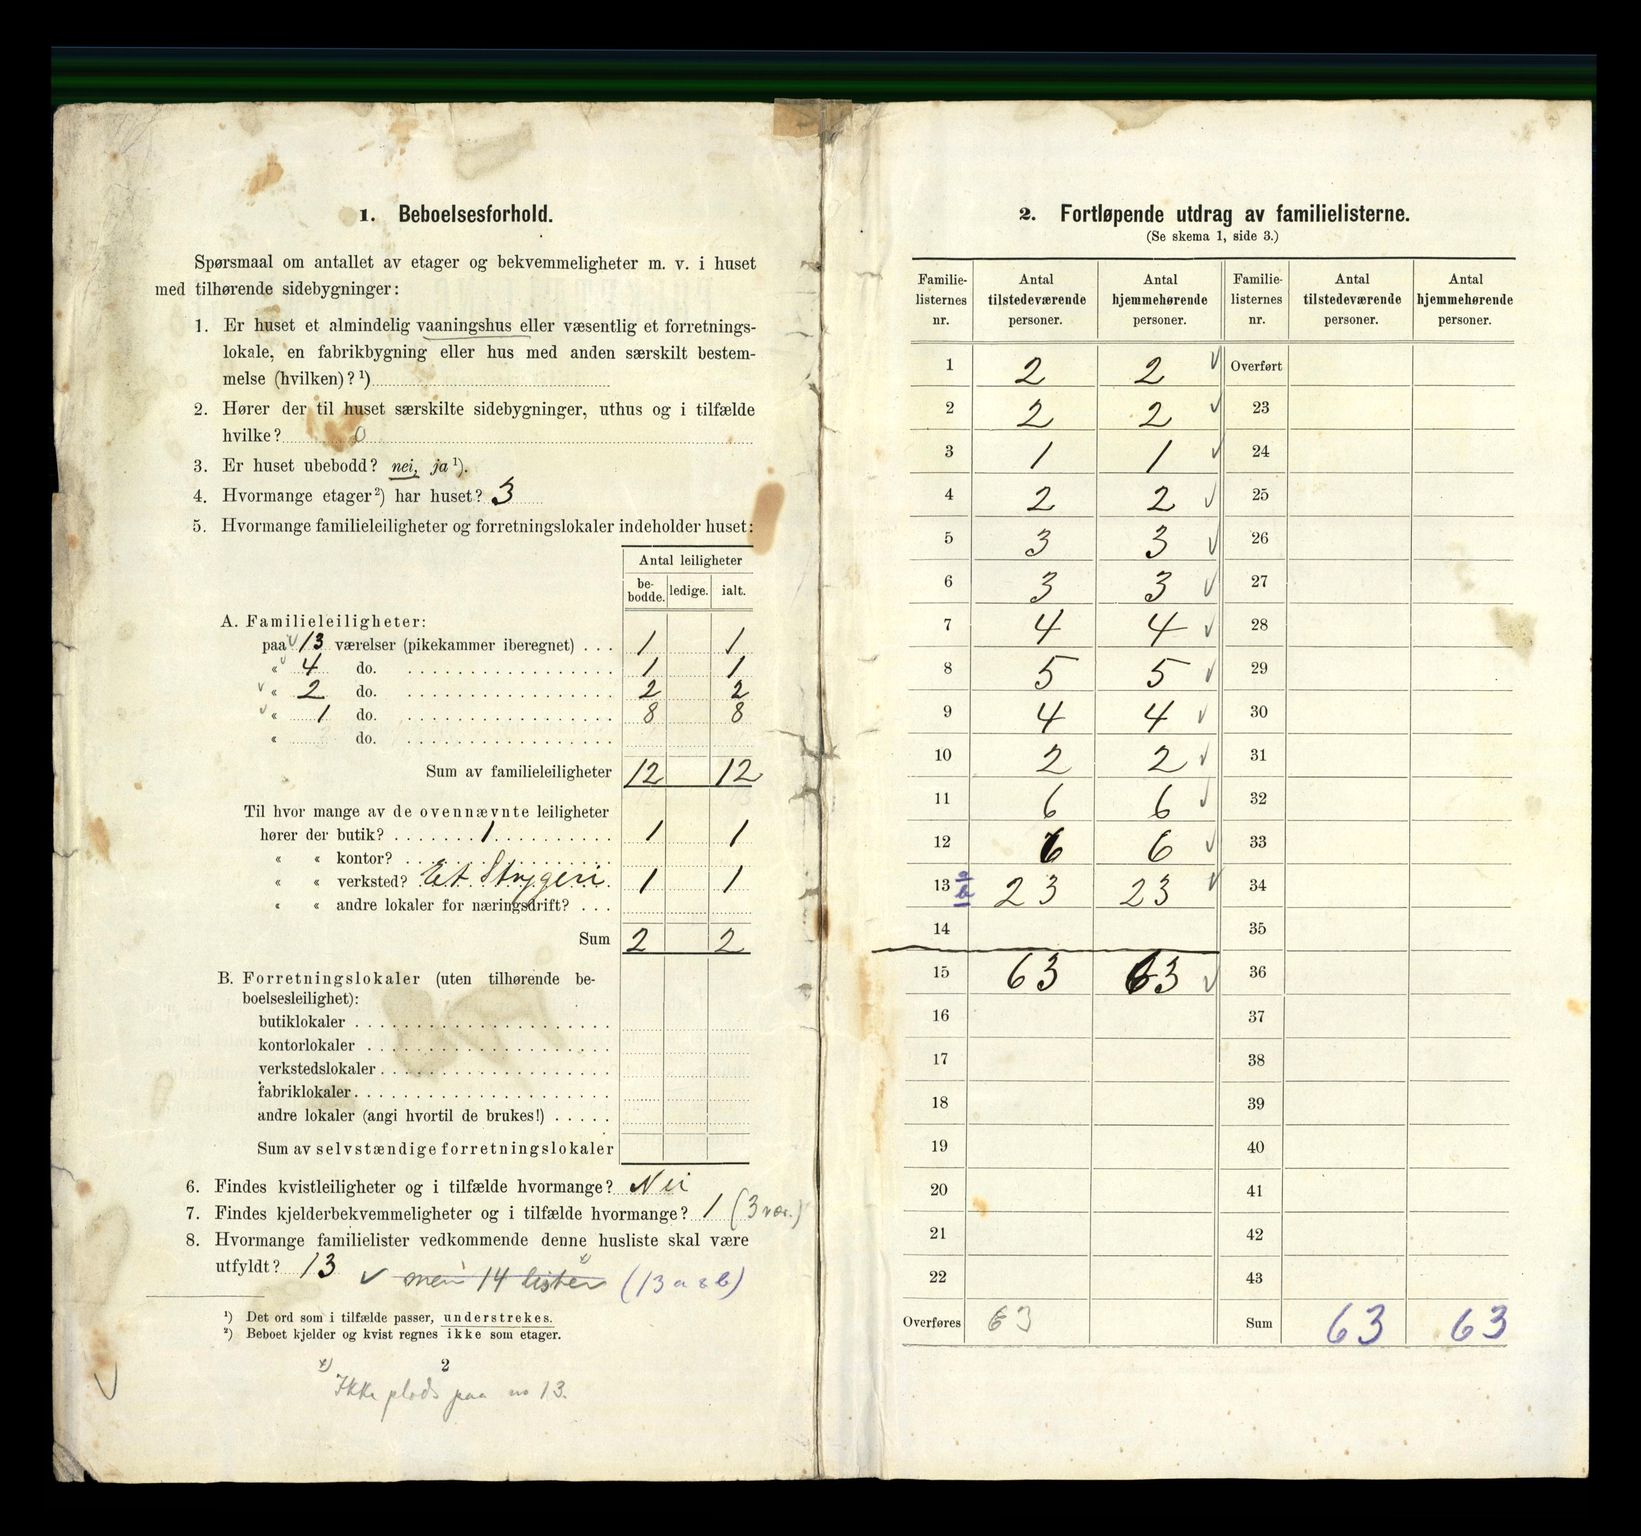 1. Beboelsesforhold.
Spørsmaal om antallet av etager og bekvemmeligheter m. v. i huset
med tilhørende sidebygninger:
1. Er huset et almindelig vaaningshus eller væsentlig et forretnings-
lokale, en fabrikbygning eller hus med anden særskilt bestem-
melse (hvilken)? ¹)
2. Hører der til huset særskilte sidebygninger, uthus og i tilfælde
hvilke? 0
3. Er huset ubebodd? nei, ja ¹).
4. Hvormange etager ²) har huset? 3
5. Hvormange familieleiligheter og forretningslokaler indeholder huset:
Antal leiligheter
be-bodde. ledige. ialt.
A. Familieleiligheter:
paa 13 værelser (pikekammer iberegnet) . . . 1 1
« 4 do. 1 1
« 2 do. 2 2
« 1 do. 8 8
« do.
Sum av familieleiligheter 12 12
Til hvor mange av de ovennævnte leiligheter
hører der butik? 1 1 1
« « kontor?
« « verksted? Et Strygeri 1 1
« « andre lokaler for næringsdrift? . . .
Sum 2 2
B. Forretningslokaler (uten tilhørende be-
boelsesleilighet):
butiklokaler
kontorlokaler
verkstedslokaler
fabriklokaler
andre lokaler (angi hvortil de brukes!)
Sum av selvstændige forretningslokaler
6. Findes kvistleiligheter og i tilfælde hvormange? Nei
7. Findes kjelderbekvemmeligheter og i tilfælde hvormange? 1 (3 vær.)
8. Hvormange familielister vedkommende denne husliste skal være
utfyldt? 13 ✓ men 14 lister x) (13 a & b)
¹) Det ord som i tilfælde passer, understrekes.
²) Beboet kjelder og kvist regnes ikke som etager.
2
x) Ikke plads paa no 13.
2. Fortløpende utdrag av familielisterne.
(Se skema 1, side 3.)
Familie-listernes nr. Antal tilstedeværende personer. Antal hjemmehørende personer. Familie-listernes nr. Antal tilstedeværende personer. Antal hjemmehørende personer.
1 2 2 ✓ Overført
2 2 2 ✓ 23
3 1 1 ✓ 24
4 2 2 ✓ 25
5 3 3 ✓ 26
6 3 3 ✓ 27
7 4 4 ✓ 28
8 5 5 ✓ 29
9 4 4 ✓ 30
10 2 2 ✓ 31
11 6 6 ✓ 32
12 6 6 ✓ 33
13 a b 23 23 ✓ 34
14 35
15 63 63 ✓ 36
16 37
17 38
18 39
19 40
20 41
21 42
22 43
Overføres 63 Sum 63 63